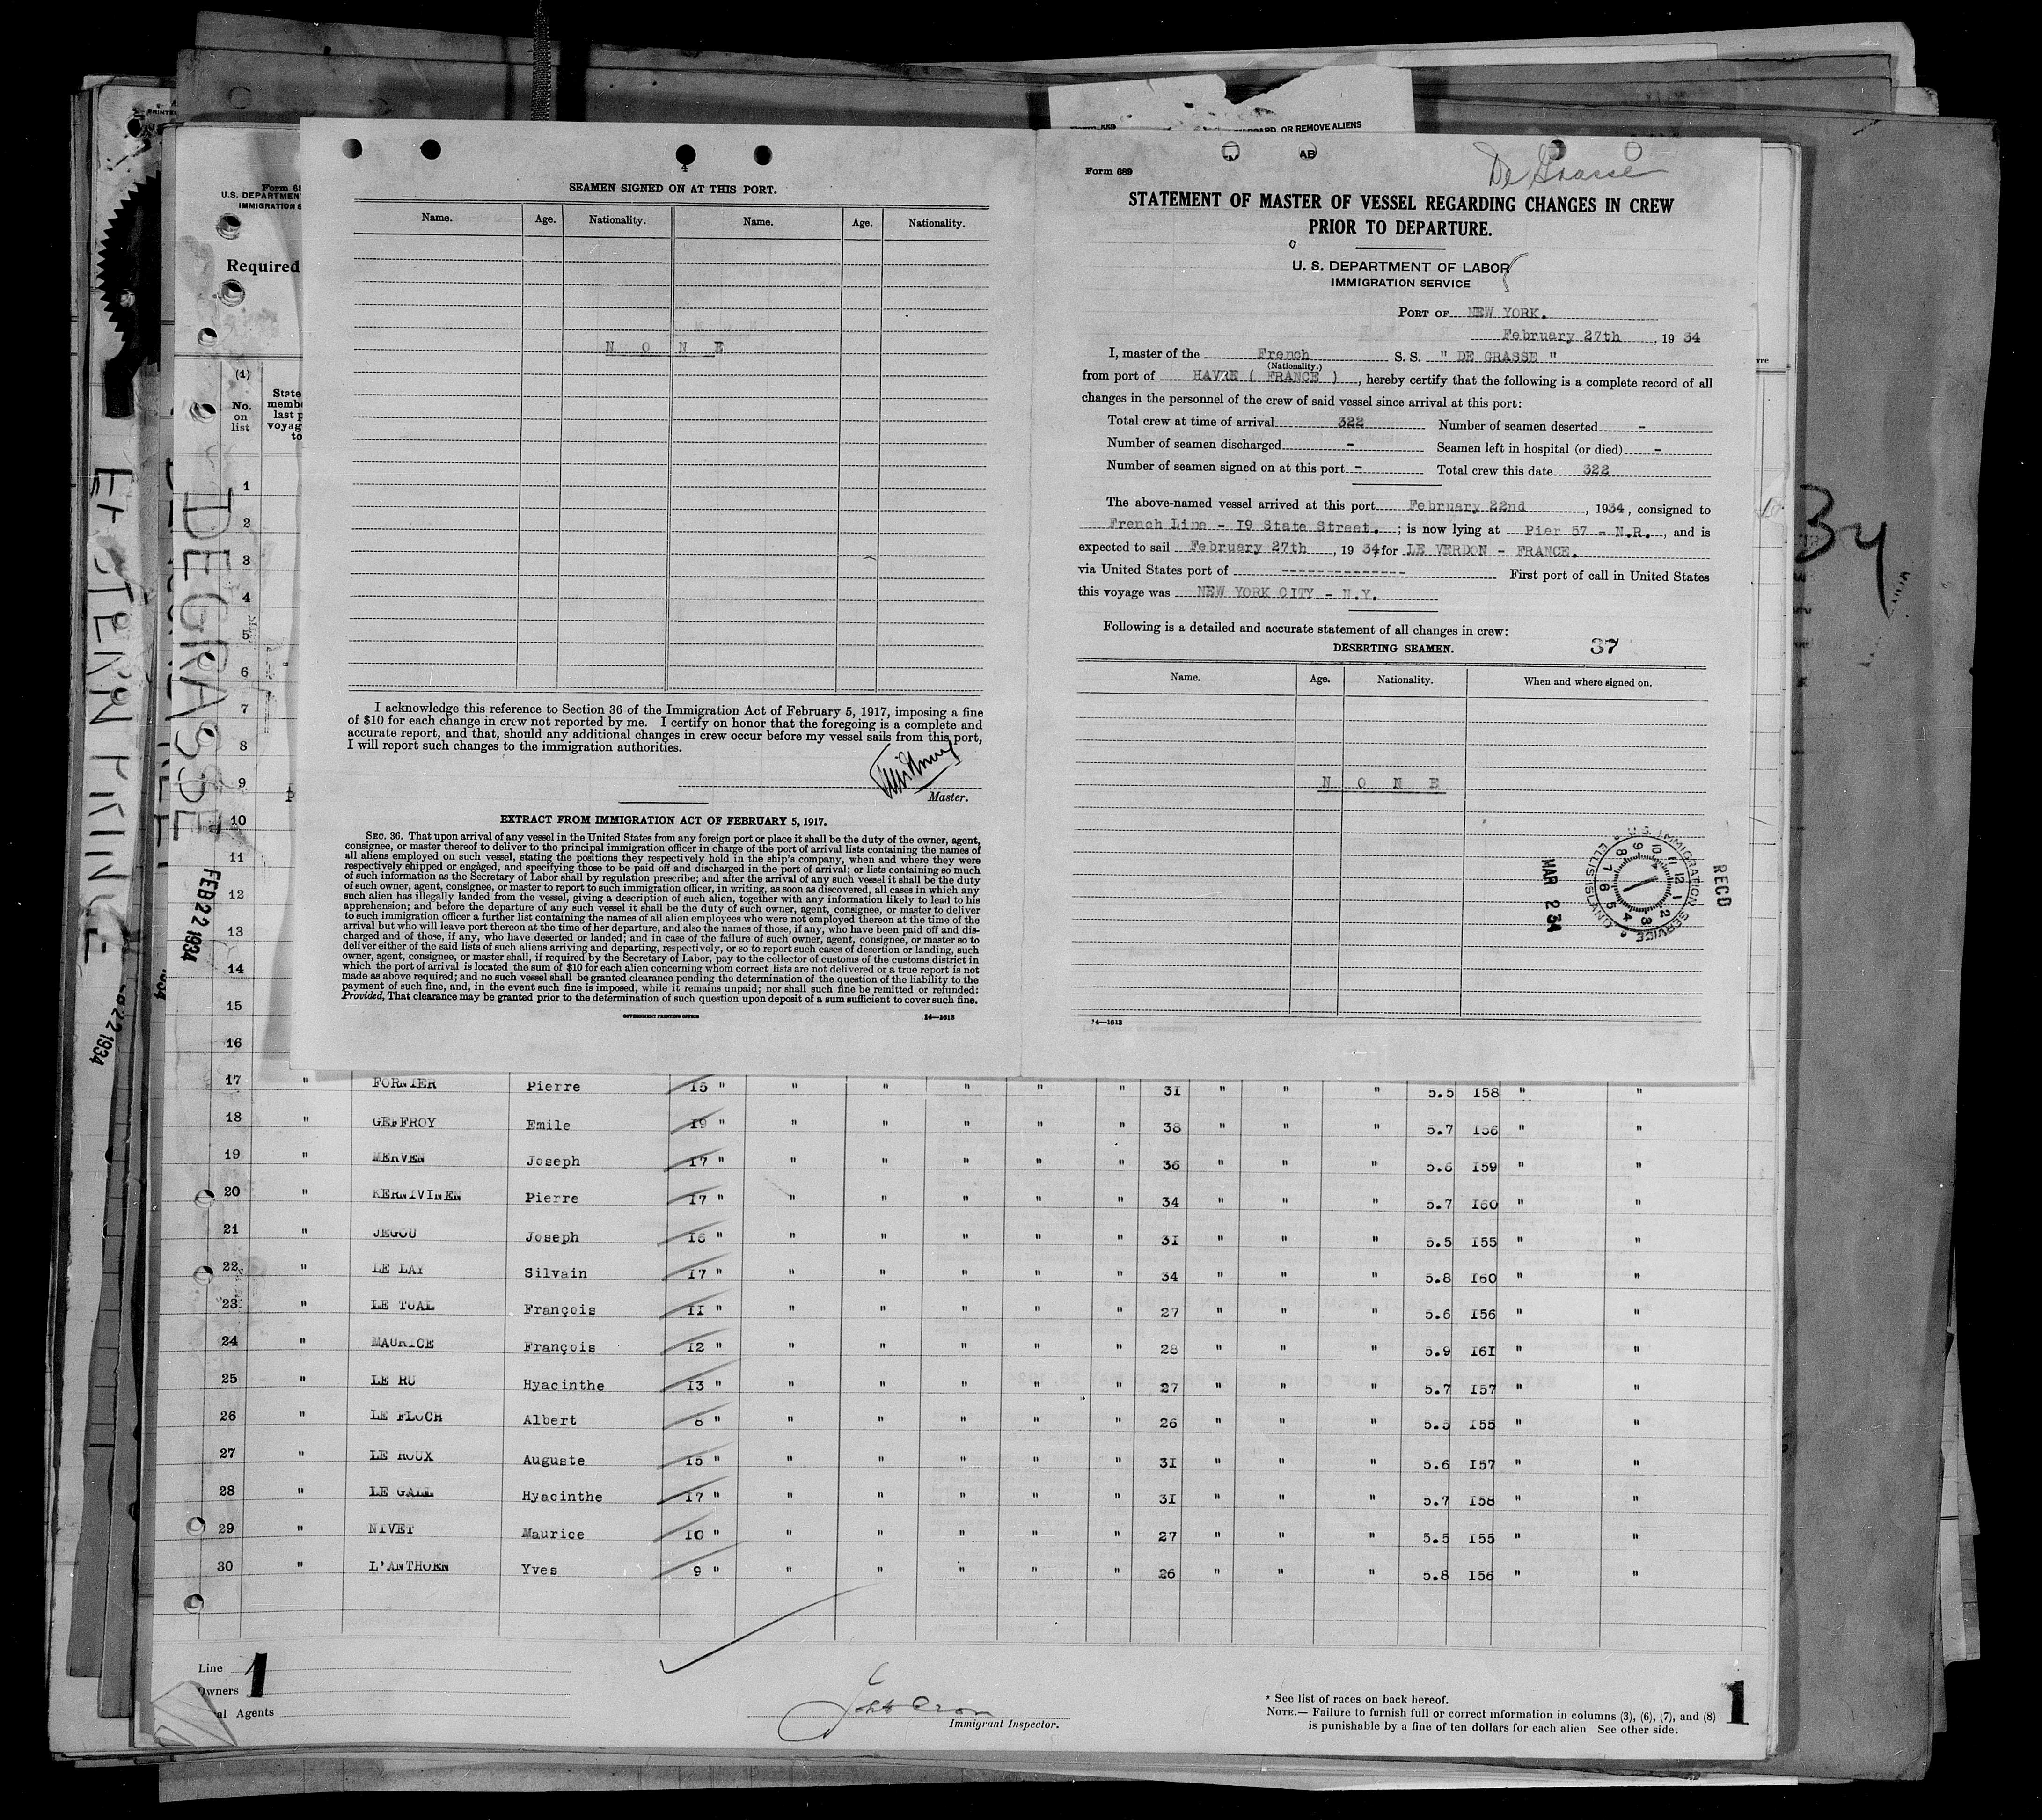 SEAMEN SIGNED ON AT THIS PORT.
Name. Age. Nationality. Name. Age. Nationality.
N O N E
I acknowledge this reference to Section 36 of the Immigration Act of February 5, 1917, imposing a fine
of $10 for each change in crew not reported by me. I certify on honor that the foregoing is a complete and
accurate report, and that, should any additional changes in crew occur before my vessel sails from this port,
I will report such changes to the immigration authorities.
Master.
EXTRACT FROM IMMIGRATION ACT OF FEBRUARY 5, 1917.
SEC. 36. That upon arrival of any vessel in the United States from any foreign port or place it shall be the duty of the owner, agent,
consignee, or master thereof to deliver to the principal immigration officer in charge of the port of arrival lists containing the names of
all aliens employed on such vessel, stating the positions they respectively hold in the ship's company, when and where they were
respectively shipped or engaged, and specifying those to be paid off and discharged in the port of arrival; or lists containing so much
of such information as the Secretary of Labor shall by regulation prescribe; and after the arrival of any such vessel it shall be the duty
of such owner, agent, consignee, or master to report to such immigration officer, in writing, as soon as discovered, all cases in which any
such alien has illegally landed from the vessel, giving a description of such alien, together with any information likely to lead to his
apprehension; and before the departure of any such vessel it shall be the duty of such owner, agent, consignee, or master to deliver
to such immigration officer a further list containing the names of all alien employees who were not employed thereon at the time of the
arrival but who will leave port thereon at the time of her departure, and also the names of those, if any, who have been paid off and dis-
charged and of those, if any, who have deserted or landed; and in case of the failure of such owner, agent, consignee, or master so to
deliver either of the said lists of such aliens arriving and departing, respectively, or so to report such cases of desertion or landing, such
owner, agent, consignee, or master shall, if required by the Secretary of Labor, pay to the collector of customs of the customs district in
which the port of arrival is located the sum of $10 for each alien concerning whom correct lists are not delivered or a true report is not
made as above required; and no such vessel shall be granted clearance pending the determination of the question of the liability to the
payment of such fine, and, in the event such fine is imposed, while it remains unpaid; nor shall such fine be remitted or refunded:
Provided, That clearance may be granted prior to the determination of such question upon deposit of a sum sufficient to cover such fine.
GOVERNMENT PRINTING OFFICE 14—1613
OR REMOVE ALIENS
AB
Form 689
De Grasse
STATEMENT OF MASTER OF VESSEL REGARDING CHANGES IN CREW
PRIOR TO DEPARTURE.
U. S. DEPARTMENT OF LABOR
IMMIGRATION SERVICE
PORT OF NEW YORK.
February 27th, 1934
I, master of the French S. S. " DE GRASSE "
(Nationality.)
from port of HAVRE ( FRANCE ), hereby certify that the following is a complete record of all
changes in the personnel of the crew of said vessel since arrival at this port:
Total crew at time of arrival 322 Number of seamen deserted -
Number of seamen discharged - Seamen left in hospital (or died) -
Number of seamen signed on at this port - Total crew this date 322
The above-named vessel arrived at this port February 22nd, 1934, consigned to
French Line - I9 State Street. ; is now lying at Pier 57 - N.R., and is
expected to sail February 27th, 1934, for LE VERDON - FRANCE.
via United States port of -------------- First port of call in United States
this voyage was NEW YORK CITY - N.Y.
Following is a detailed and accurate statement of all changes in crew:
DESERTING SEAMEN. 37
Name. Age. Nationality. When and where signed on.
N O N E
U.S. IMMIGRATION SERVICE
ELLIS ISLAND
RECD
MAR 2 34
14—1613
U.S. DEPARTMENT
IMMIGRATION S
Required
(1)
No.
on
list
State
memb
last p
voyag
to
1
2
3
4
5
6
7
8
9
10
11
12
13
14
15
16
DEGRASSE
FEB 22 1934
34
17 " FORNIER Pierre I5 " " " " " " 3I " " " 5.5 I58 " "
18 " GEFFROY Emile I9 " " " " " " 38 " " " 5.7 I56 " "
19 " MERVEN Joseph I7 " " " " " " 36 " " " 5.6 I59 " "
20 " KERNIVINEN Pierre I7 " " " " " " 34 " " " 5.7 I60 " "
21 " JEGOU Joseph I6 " " " " " " 3I " " " 5.5 I55 " "
22 " LE LAY Silvain I7 " " " " " " 34 " " " 5.8 I60 " "
23 " LE TUAL François II " " " " " " 27 " " " 5.6 I56 " "
24 " MAURICE François I2 " " " " " " 28 " " " 5.9 I6I " "
25 " LE RU Hyacinthe I3 " " " " " " 27 " " " 5.7 I57 " "
26 " LE FLOCH Albert 8 " " " " " " 26 " " " 5.5 I55 " "
27 " LE ROUX Auguste I5 " " " " " " 3I " " " 5.6 I57 " "
28 " LE GALL Hyacinthe I7 " " " " " " 3I " " " 5.7 I58 " "
29 " NIVET Maurice I0 " " " " " " 27 " " " 5.5 I55 " "
30 " L'ANTHOEN Yves 9 " " " " " " 26 " " " 5.8 I56 " "
Line 1
Owners
Agents
Immigrant Inspector.
* See list of races on back hereof.
NOTE.— Failure to furnish full or correct information in columns (3), (6), (7), and (8)
is punishable by a fine of ten dollars for each alien See other side.
1